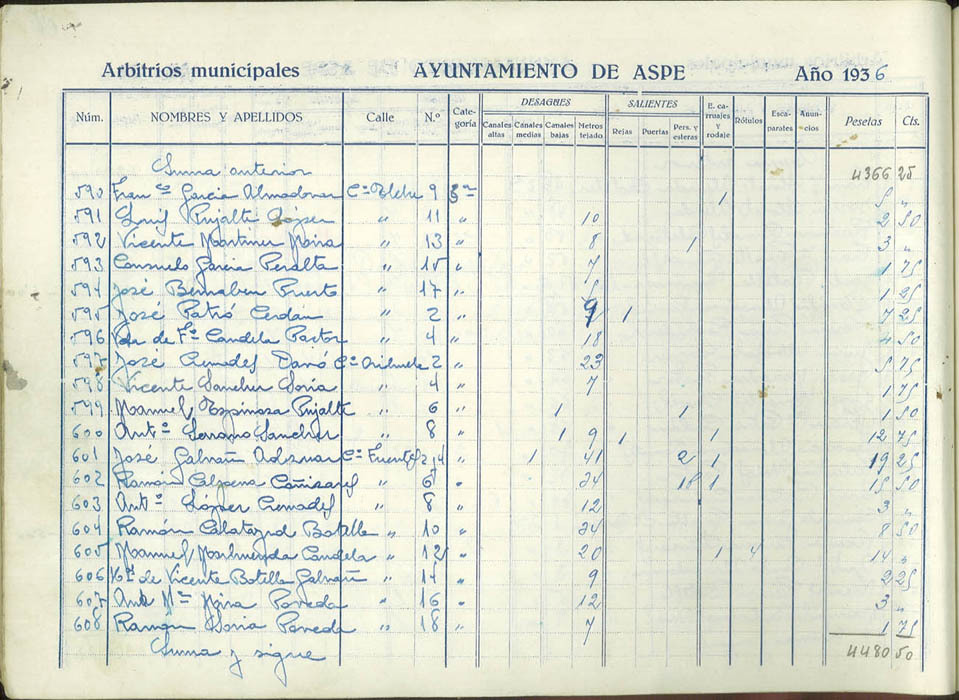 Arbitrios municipales AYUNTAMIENTO DE ASPE Año 1936
Núm. NOMBRES Y APELLIDOS Calle N.º Categoría DESAGÜES SALIENTES E. carruajes y rodaje Rótulos Escaparates Anuncios Pesetas Cts.
Canales altas Canales medias Canales bajas Metros tejado Rejas Puertas Pers. y esteras
Suma anterior 4366 25
590 Fran.co Garcia Almodovar 9 1 5 "
591 Luis Pujalte López " 11 " 10 2 50
592 Vicente Martinez Mira " 13 " 8 1 3 "
593 Consuelo Garcia Peralta " 15 " 7 1 75
594 José Bernabeu Puerto " 17 " 5 1 25
595 José Patró Cerdan " 2 " 9 1 7 25
596 Vda de F.º Candela Pastor " 4 " 18 4 50
597 José Cremades C.º Orihuela 2 " 23 5 75
598 Vicente Sanchez Soria " 4 " 7 1 75
599 Manuel Espinosa Pujalte " 6 " 1 1 1 50
600 Ant.º Serrano Sanchez " 8 " 1 9 1 1 12 75
601 José Galvañ C.º Fuentes 2 y 4 " 1 41 2 1 19 25
602 Ramón Calpena Cañizares " 6 " 34 1 15 50
603 Ant.º López Cremades " 8 " 12 3 "
604 Ramón Calatayud Botella " 10 " 34 8 50
605 Manuel Marhuenda Candela " 12 " 20 1 4 14 "
606 de Vicente Botella Galvañ " 14 " 9 2 25
607 Ant.º M.ª Mira Poveda " 16 " 12 3 "
608 Ramón Soria Poveda " 18 " 7 1 75
Suma y sigue 4480 50